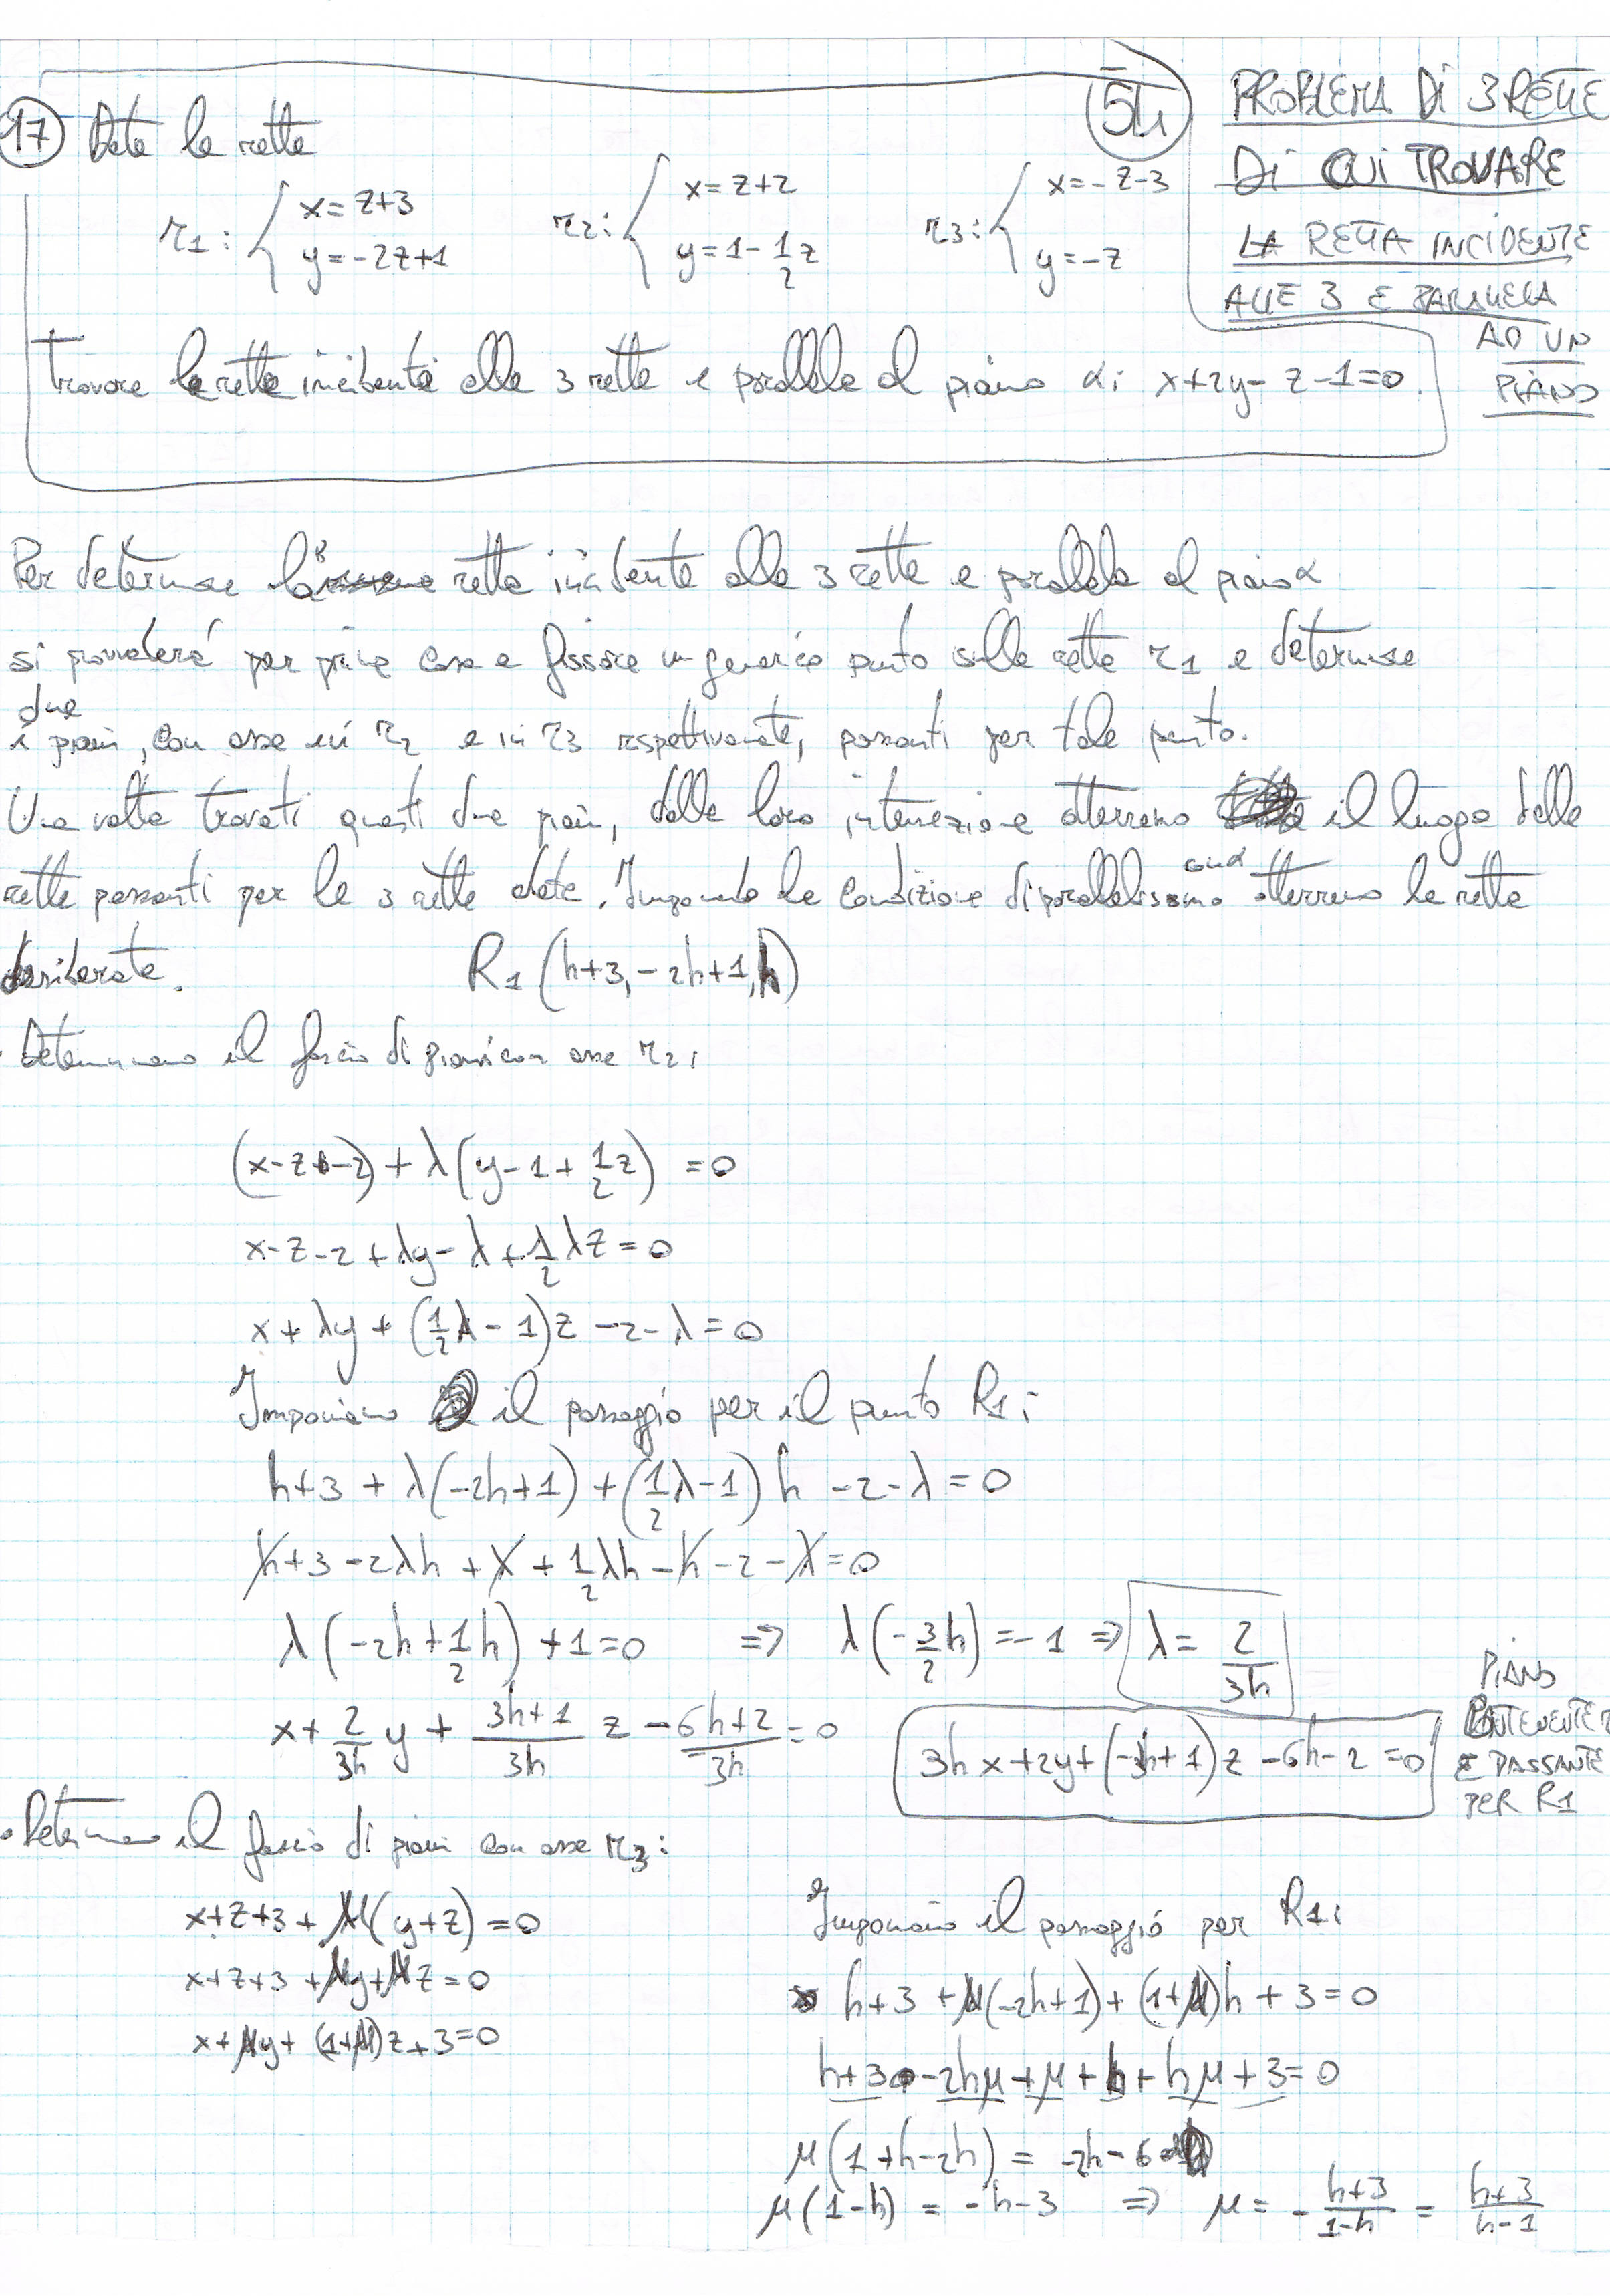 17 Date le rette
54
PROBLEMA DI 3 RETTE
DI CUI TROVARE
LA RETTA INCIDENTE
ALLE 3 E PARALLELA
AD UN
PIANO
r1: { x=z+3 y=-2z+1 r2: { x=z+2 y=1-1/2z r3: { x=-z-3 y=-z
Trovare la retta incidente alle 3 rette e parallela al piano α: x+2y-z-1=0.
Per determinare la retta incidente alle 3 rette e parallela al piano α
si provvederà per prima cosa a fissare un generico punto sulla retta r1 e determinare
due
i piani, con asse in r2 e in r3 rispettivamente, passanti per tale punto.
Una volta trovati questi due piani, dalla loro intersezione otterremo il luogo delle
rette passanti per le 3 rette date. Imponendo la condizione di parallelismo con α otterremo la retta
desiderata. R1(h+3,-2h+1,h)
Determiniamo il fascio di piani con asse r2:
(x-z-2)+λ(y-1+1/2z)=0
x-z-2+λy-λ+1/2λz=0
x+λy+(1/2λ-1)z-2-λ=0
Imponiamo il passaggio per il punto R1:
h+3+λ(-2h+1)+(1/2λ-1)h-2-λ=0
h+3-2λh+λ+1/2λh-h-2-λ=0
λ(-2h+1/2h)+1=0 => λ(-3/2h)=-1 => λ=2/3h
x+2/3h y+3h+1/3h z-6h+2/3h=0
3hx+2y+(-3h+1)z-6h-2=0
PIANO
CONTENENTE r
E PASSANTE
PER R1
Determino il fascio di piani con asse r3:
x+z+3+μ(y+z)=0
x+z+3+μy+μz=0
x+μy+(1+μ)z+3=0
Imponiamo il passaggio per R1:
h+3+μ(-2h+1)+(1+μ)h+3=0
h+3-2hμ+μ+h+hμ+3=0
μ(1+h-2h)=-2h-6
μ(1-h)=-h-3 => μ=-h+3/1-h=h+3/h-1